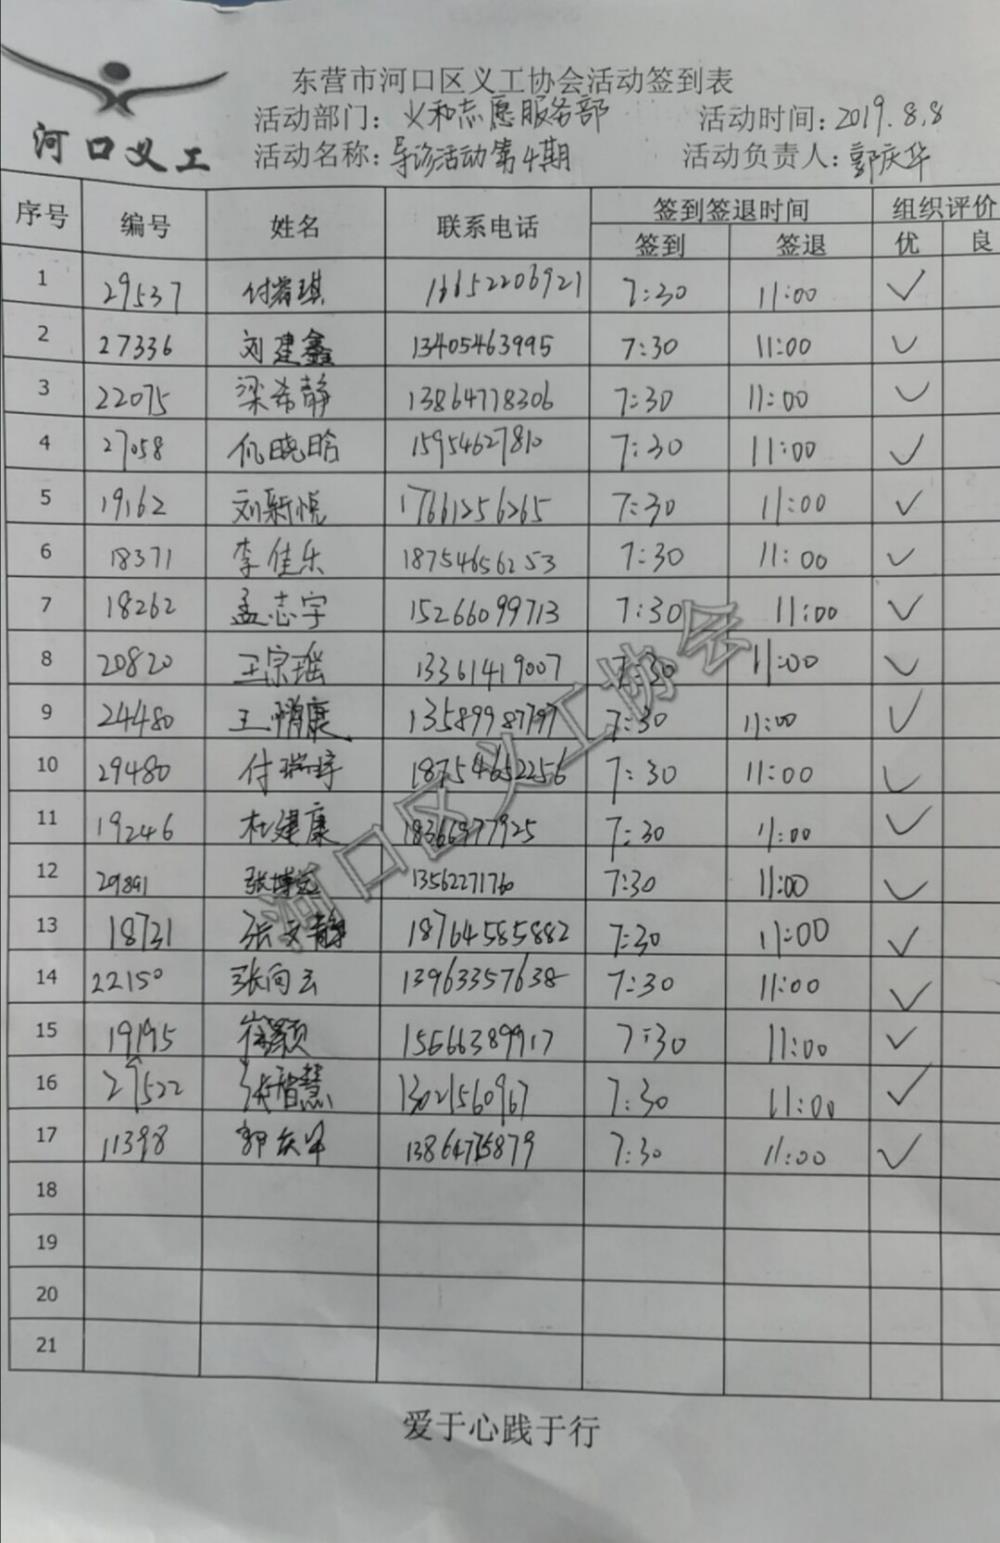 东营市河口区义工协会活动签到表
活动部门：义和志愿服务部 活动时间：2019.8.8
河口义工
活动名称：导诊活动第4期 活动负责人：郭庆华
序号 编号 姓名 联系电话 签到签退时间 组织评价
签到 签退 优 良
1 29537 付 琪 16652206921 7:30 11:00 ✓
2 27336 刘建鑫 13405463995 7:30 11:00 ✓
3 22075 梁希静 13864778306 7:30 11:00 ✓
4 27058 仉晓晗 15954627810 7:30 11:00 ✓
5 19162 刘新悦 17661256265 7:30 11:00 ✓
6 18371 李佳乐 18754656253 7:30 11:00 ✓
7 18262 孟志宇 15266099713 7:30 11:00 ✓
8 20820 王宗瑶 13361419007 7:30 11:00 ✓
9 24480 王 康 13589987797 7:30 11:00 ✓
10 29480 付瑞 18754652256 7:30 11:00 ✓
11 19246 杜建康 18366977925 7:30 11:00 ✓
12 29891 张博 13562271760 7:30 11:00 ✓
13 18731 张文静 18764585882 7:30 11:00 ✓
14 22150 张向云 13963357638 7:30 11:00 ✓
15 19195 崔颖 15666389917 7:30 11:00 ✓
16 29522 张智慧 13021560967 7:30 11:00 ✓
17 11398 郭庆华 13864775879 7:30 11:00 ✓
18
19
20
21
河口区义工协会
爱于心践于行